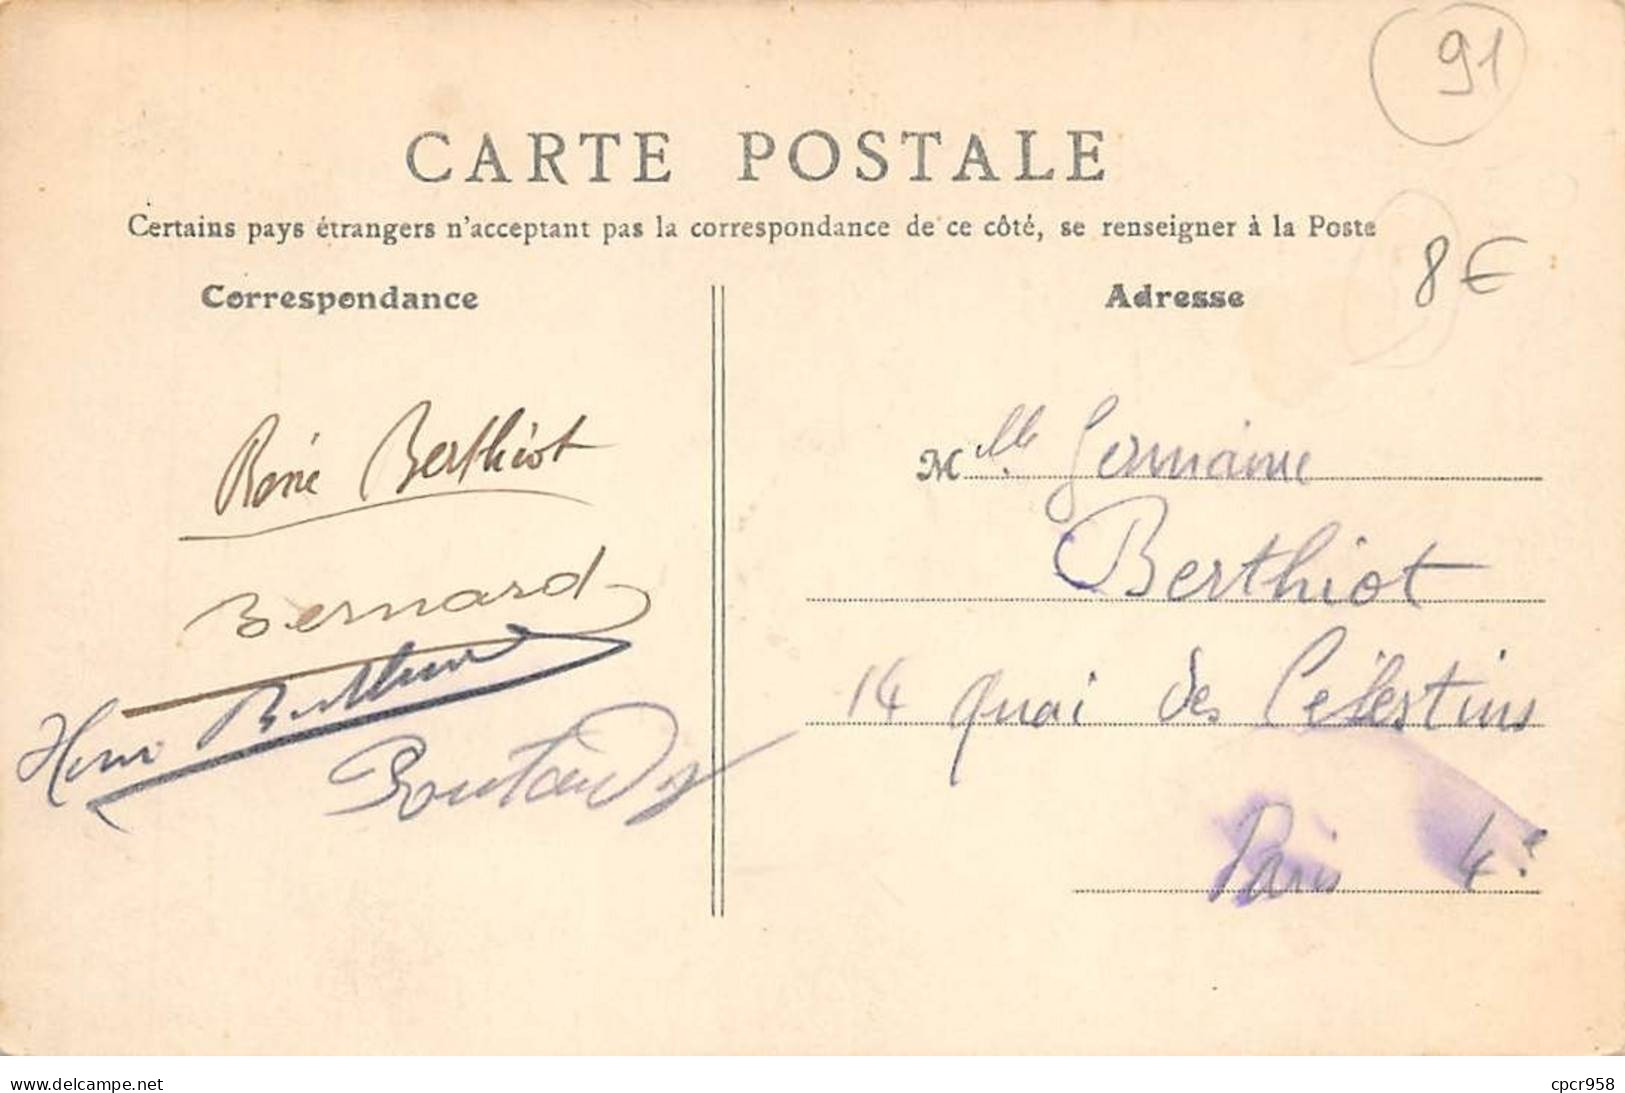 91
CARTE POSTALE
Certains pays étrangers n'acceptant pas la correspondance de ce côté, se renseigner à la Poste
8€
Correspondance
Adresse
René Berthiot
Bernard
Mlle Germaine
Berthiot
14 quai des Célestins
Paris 4e
www.delcampe.net
cpcr958